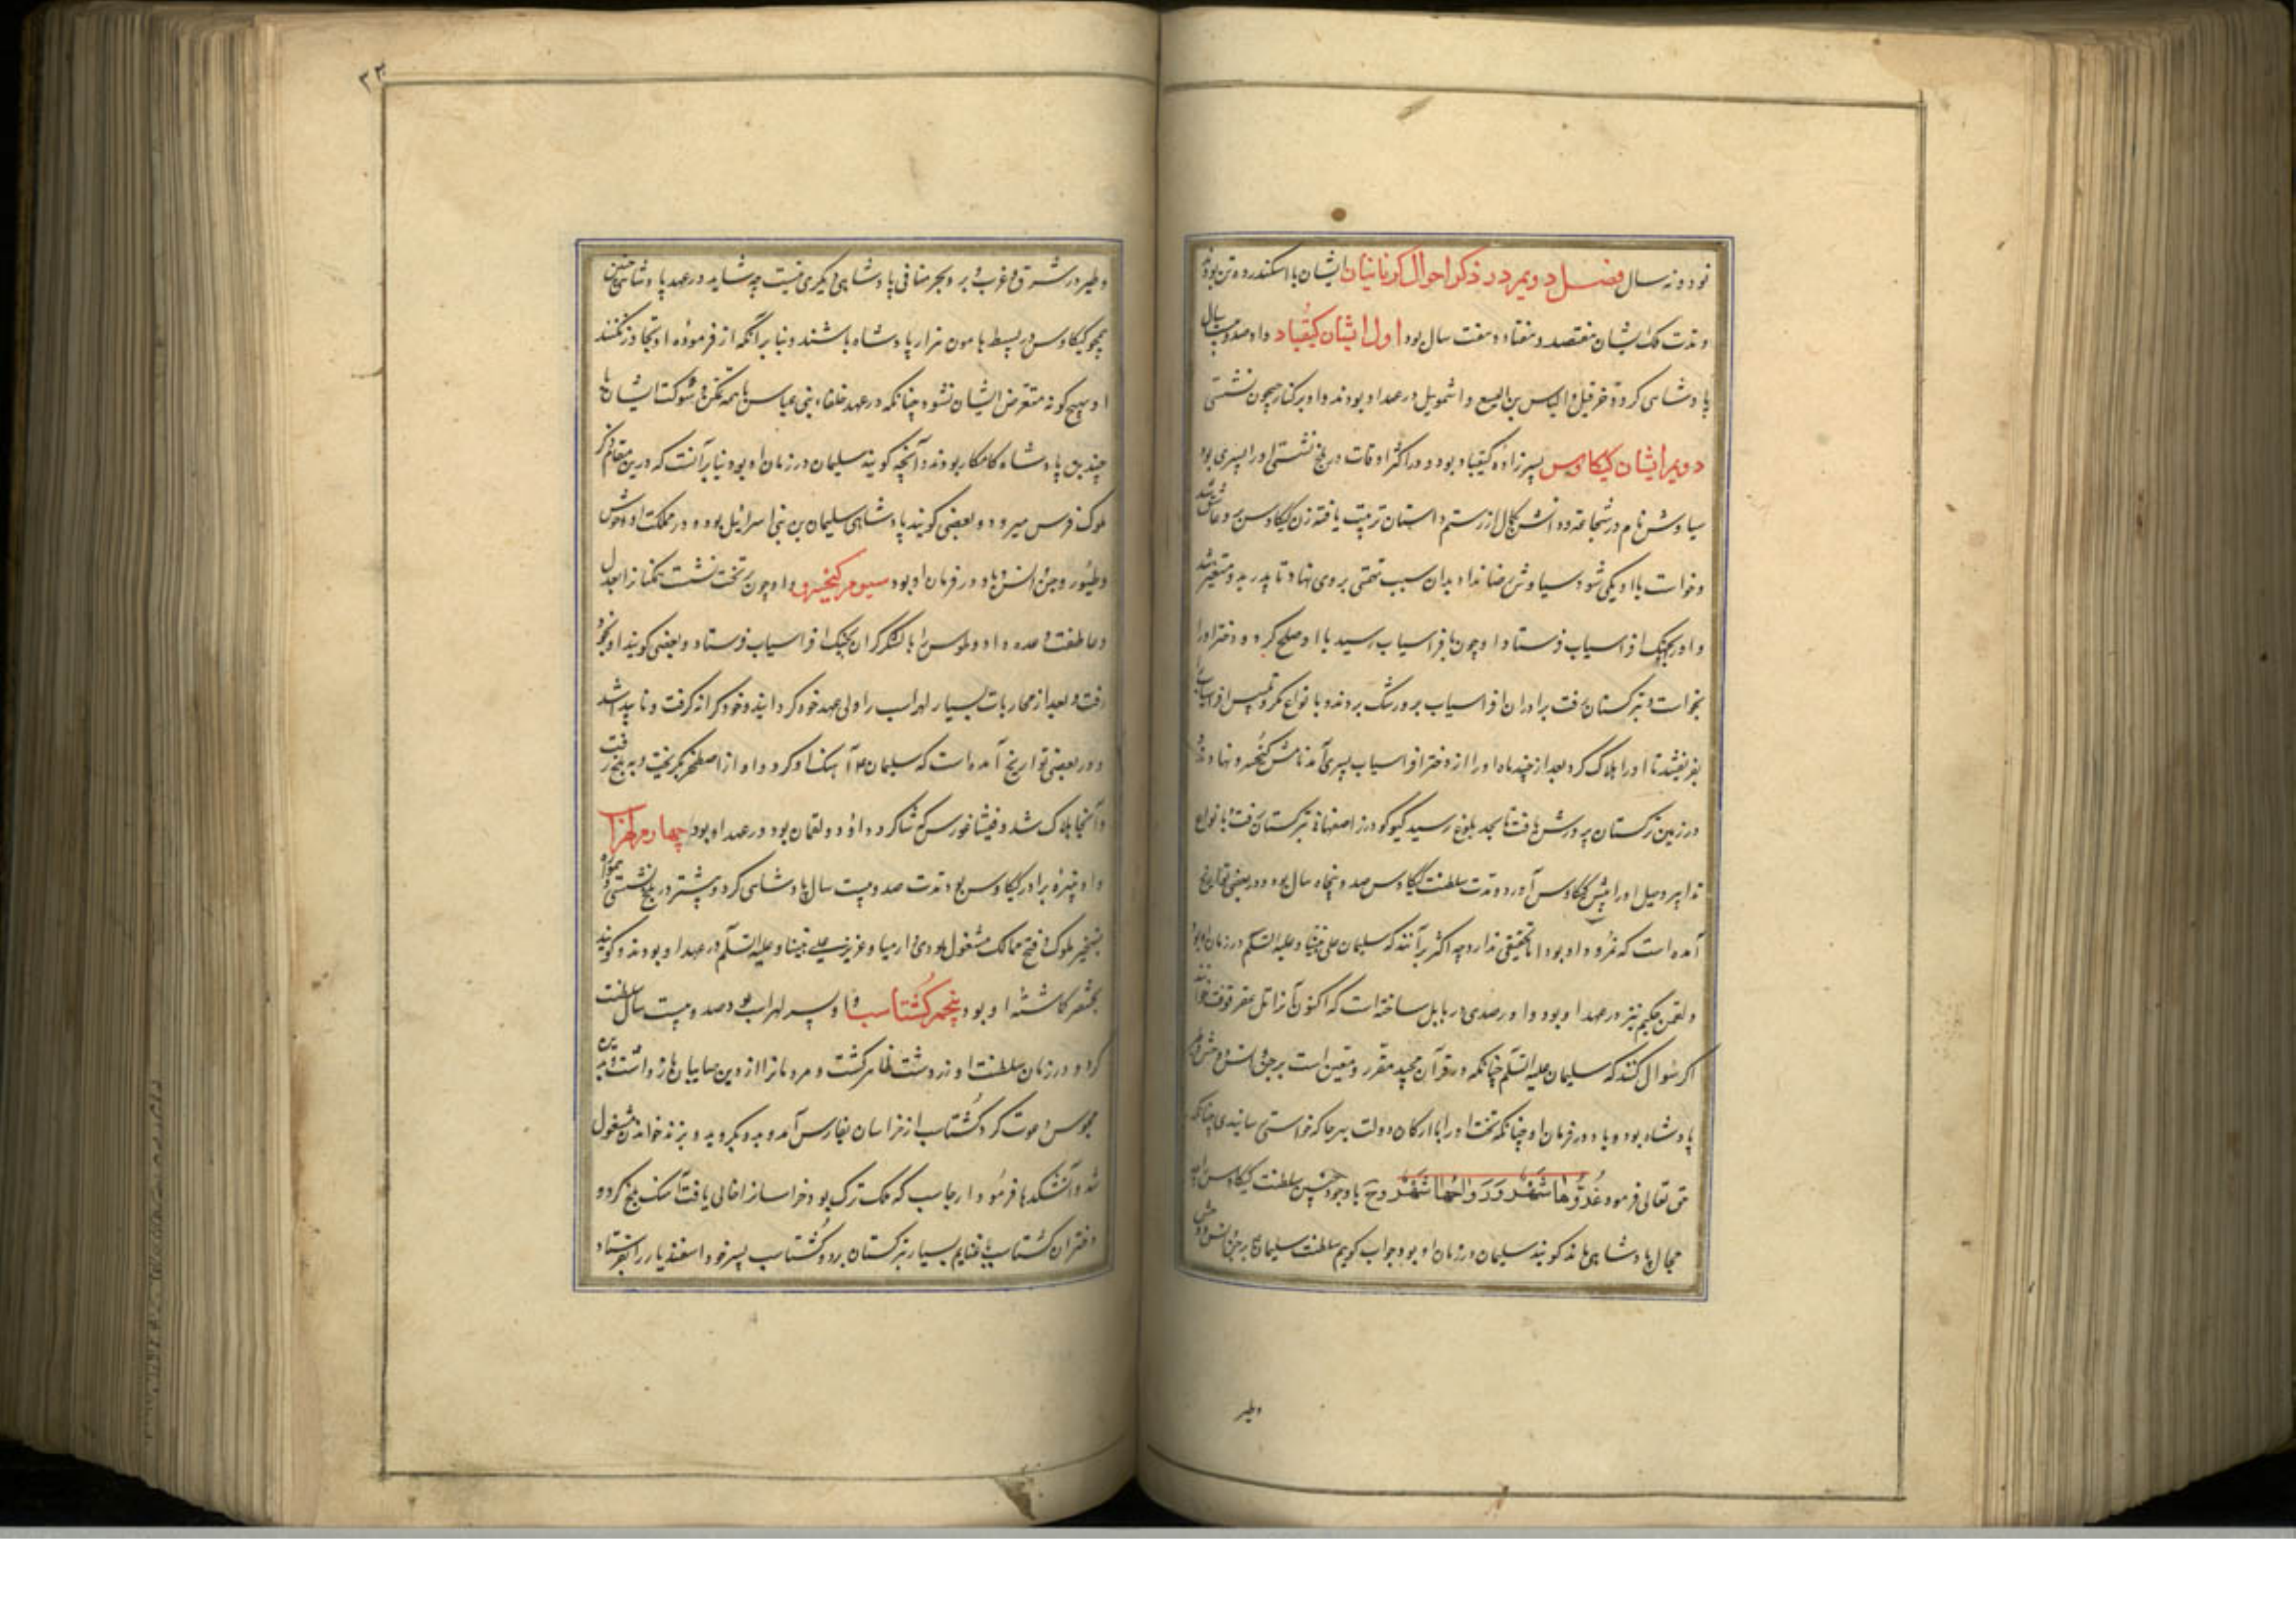 نود و نه سال فصل دویم در ذکر احوال کیانیان ایشان با اسکندر ده تن بودند
و مدت ملک ایشان هفتصد و هفتاد و هفت سال بود اول ایشان کیقباد و او صد و بیست سال
پادشاهی کرد و حزقیل و الیاس بن الیسع و اشمویل در عهد او بودند و او بر کنار جیحون نشستی
دویم ایشان کیکاوس پسرزاده کیقباد بود و در اکثر اوقات در بلخ نشستی او را پسری بود
سیاوش نام در شجاعت و دانش کامل از رستم داستان تربیت یافته زن کیکاوس بر وی عاشق شد
و خواست با او یکی شود سیاوش رضا نداد بدان سبب تهمتی بر وی نهاد تا پدر بد و متغیر شد
و او را بجنگ افراسیاب فرستاد او چون بافراسیاب رسید با او صلح کرد و دختر او را
بخواست و بترکستان رفت برادران افراسیاب برو رشک بردند و بانواع مکر و تلبیس افراسیاب را
بفریفتند تا او را هلاک کرد بعد از چند ماه او را از دختر افراسیاب پسری آمد نامش کیخسرو نهادند و
در زمین ترکستان پرورش یافت تا بحد بلوغ رسید گیو گودرز از اصفهان بترکستان رفت و بانواع
تدابیر و حیل او را پیش کیکاوس آورد و مدت سلطنت کیکاوس صد و پنجاه سال بود و در بعضی تواریخ
آمده است که نمرود او بود اما تحقیقی ندارد چه اکثر برآنند که سلیمان علی نبینا و علیه السلم در زمان او بود
و لقمن حکیم نیز در عهد او بود و او رصدی در بابل ساخته است که اکنون آنرا تل عقرقوف خوانند
اگر سؤال کنند که سلیمان علیه السلم چنانکه در قرآن مجید مقرر و متعین است بر جن و انس و وحش و طیر
پادشاه بود و باد در فرمان او چنانکه تخت او را با ارکان دولت بهر جا که خواستی رسانیدی چنانکه
حق تعالی فرمود غدوها شهر و رواحها شهر و ح باوجود چنین سلطنت کیکاوس را چه
مجال پادشاهی ماند گویند سلیمان در زمان او بود جواب گویم سلطنت سلیمان ع بر جن و انس و وحش
وطیر
۲۳
و طیر در شرق و غرب و بر و بحر منافی پادشاهی دیگری نیست چه شاید در عهد پادشاهی چنین
همچو کیکاوس در بسیط هامون هزار پادشاه باشند و بنا بر آنکه از فرموده او تجاوز نکنند
او بهیچ گونه متعرض ایشان نشود چنانکه در عهد خلفاء بنی عباس با همه تمکن و شوکت ایشان با
چندین پادشاه کامکار بودند و آنچه گویند سلیمان در زمان او بود بنا بر آنست که درین مقام ذکر
ملوک فرس میرود و بعضی گویند پادشاهی سلیمان بر بنی اسرائیل بود و در مملکت او وحوش
و طیور و جن و انس و باد در فرمان او بود سیوم کیخسرو و او چون بر تخت نشست ممکنانرا بعدل
و عاطفت وعده داد و طوس را با لشکر گران بجنگ افراسیاب فرستاد و بعضی گویند او بخود
رفت و بعد از محاربات بسیار لهراسب را ولی عهد خود گردانید و خود کرانه گرفت و ناپید شد
و در بعضی تواریخ آمده است که سلیمان ع آهنگ او کرد و او از اصطخر بگریخت و ببلخ رفت
و آنجا هلاک شد و فیثاغورس که شاگرد داؤد و لقمان بود در عهد او بود چهارم لهراسب
و او نبیره برادر کیکاوس بود مدت صد و بیست سال پادشاهی کرد و بیشتر در بلخ نشستی و همواره
بتسخیر ملوک و فتح ممالک مشغول بودی ارمیا و عزیز علی نبینا و علیه السلم در عهد او بودند و گویند
بختنصر گماشته او بود پنجم گشتاسب و او پسر لهراسب بود صد و بیست سال سلطنت
کرد و در زمان سلطنت او زردشت ظاهر گشت و مردمانرا از دین صابیان باز داشت و بدین
مجوس دعوت کرد گشتاسب از خراسان بفارس آمد و بدو بگروید و بزند خواندن مشغول
شد و آتشکدها فرمود و ارجاسب که ملک ترک بود خراسانرا خالی یافت آهنگ بلخ کرد و
دختران گشتاسب با غنایم بسیار بترکستان برد و گشتاسب پسر خود اسفندیار را بفرستاد